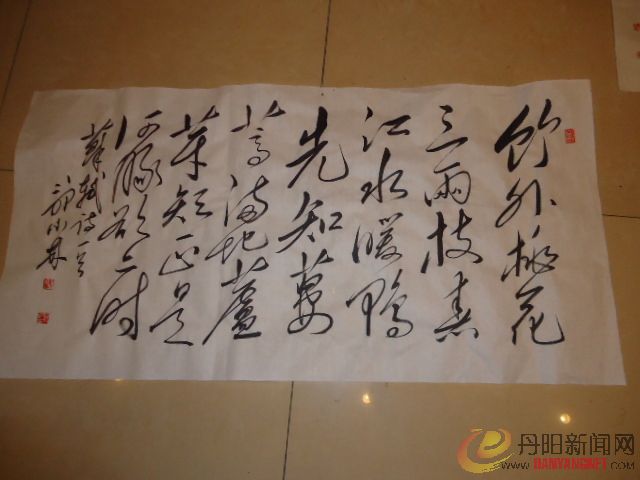 竹外桃花
三两枝春
江水暖鸭
先知蒌
蒿满地蘆
芽短正是
河豚欲上时
蘇轼诗一首
丹阳新闻网
WWW.DANYANGNET.COM